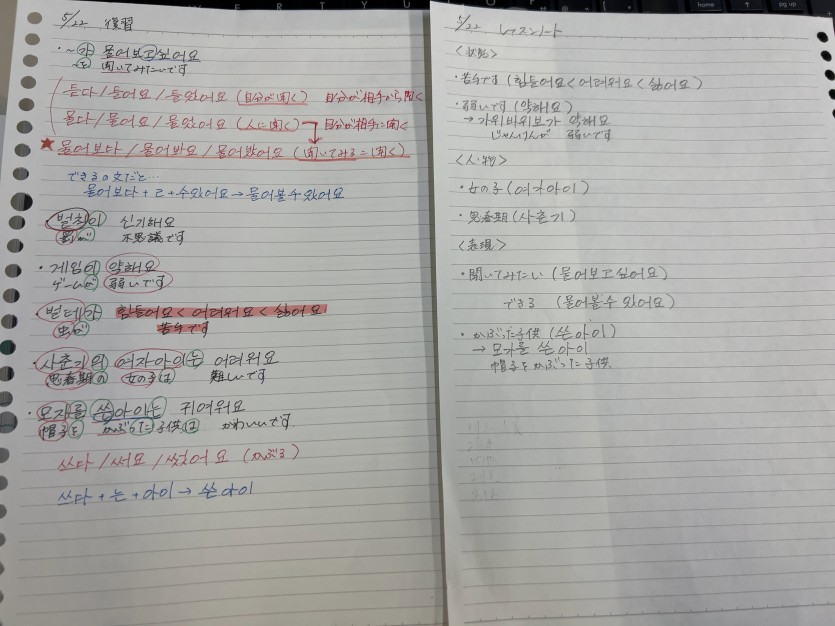 5/22 復習
・~가 물어보고싶어요
を 聞いてみたいです
듣다/들어요/들었어요 (自分が聞く) 自分が相手から聞く
묻다/물어요/물었어요 (人に聞く) 自分が相手に聞く
★ 물어보다/물어봐요/물어봤어요 (聞いてみる=聞く)
できるの文だと…
물어보다+ㄹ+수있어요→물어볼수있어요
신기해요
罰が 不思議です
・게임이 약해요
ゲームが 弱いです
힘들어요<어려워요<싫어요
虫が 苦手です
사춘기의 여자아이는 어려워요
思春期の 女の子は 難しいです
・모자를 아이는 귀여워요
帽子を かぶった子供は かわいいです.
쓰다/써요/썼어요 (かぶる)
쓰다+는+아이→쓴아이
5/22 レッスンノート
<状態>
・苦手です (힘들어요<어려워요<싫어요)
・弱いです (약해요)
→가위바위보가 약해요
じゃんけんが 弱いです
<人・物>
・女の子 (여자아이)
・思春期 (사춘기)
<表現>
・聞いてみたい (물어보고싶어요)
できる (물어볼수있어요)
・かぶった子供 (쓴아이)
→모자를 쓴아이
帽子をかぶった子供
home
pg up